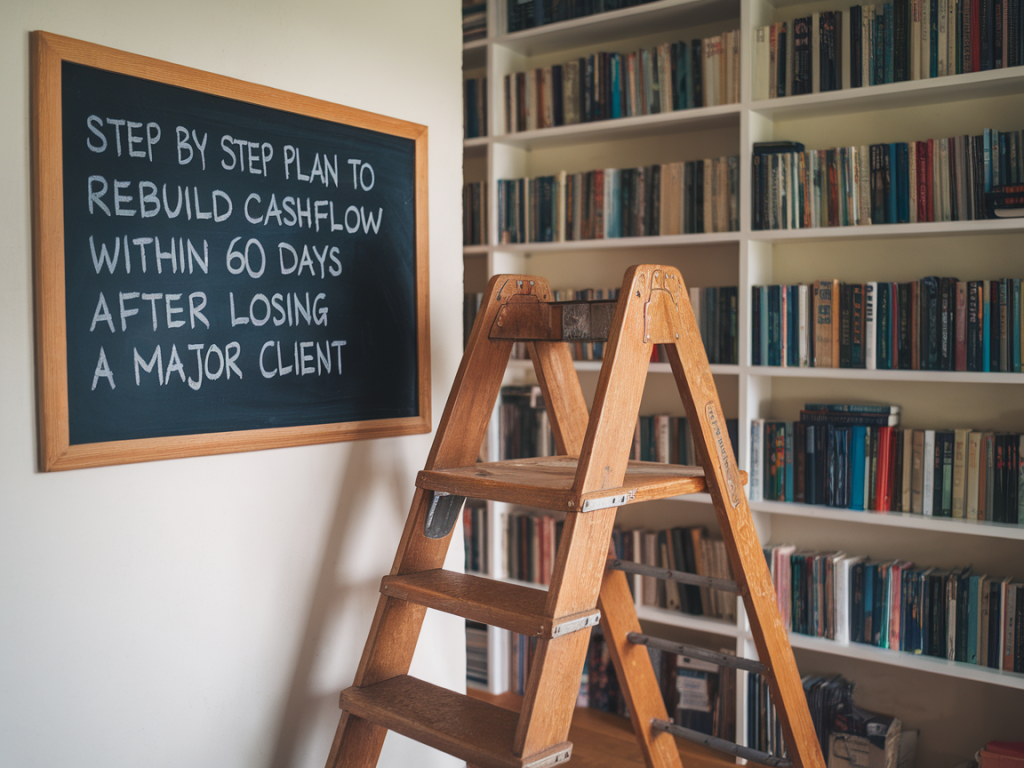 STEP BY STEP PLAN TO
REBUILD CASHFLOW
WITHIN 60 DAYS
AFTER LOSING
A MAJOR CLIENT